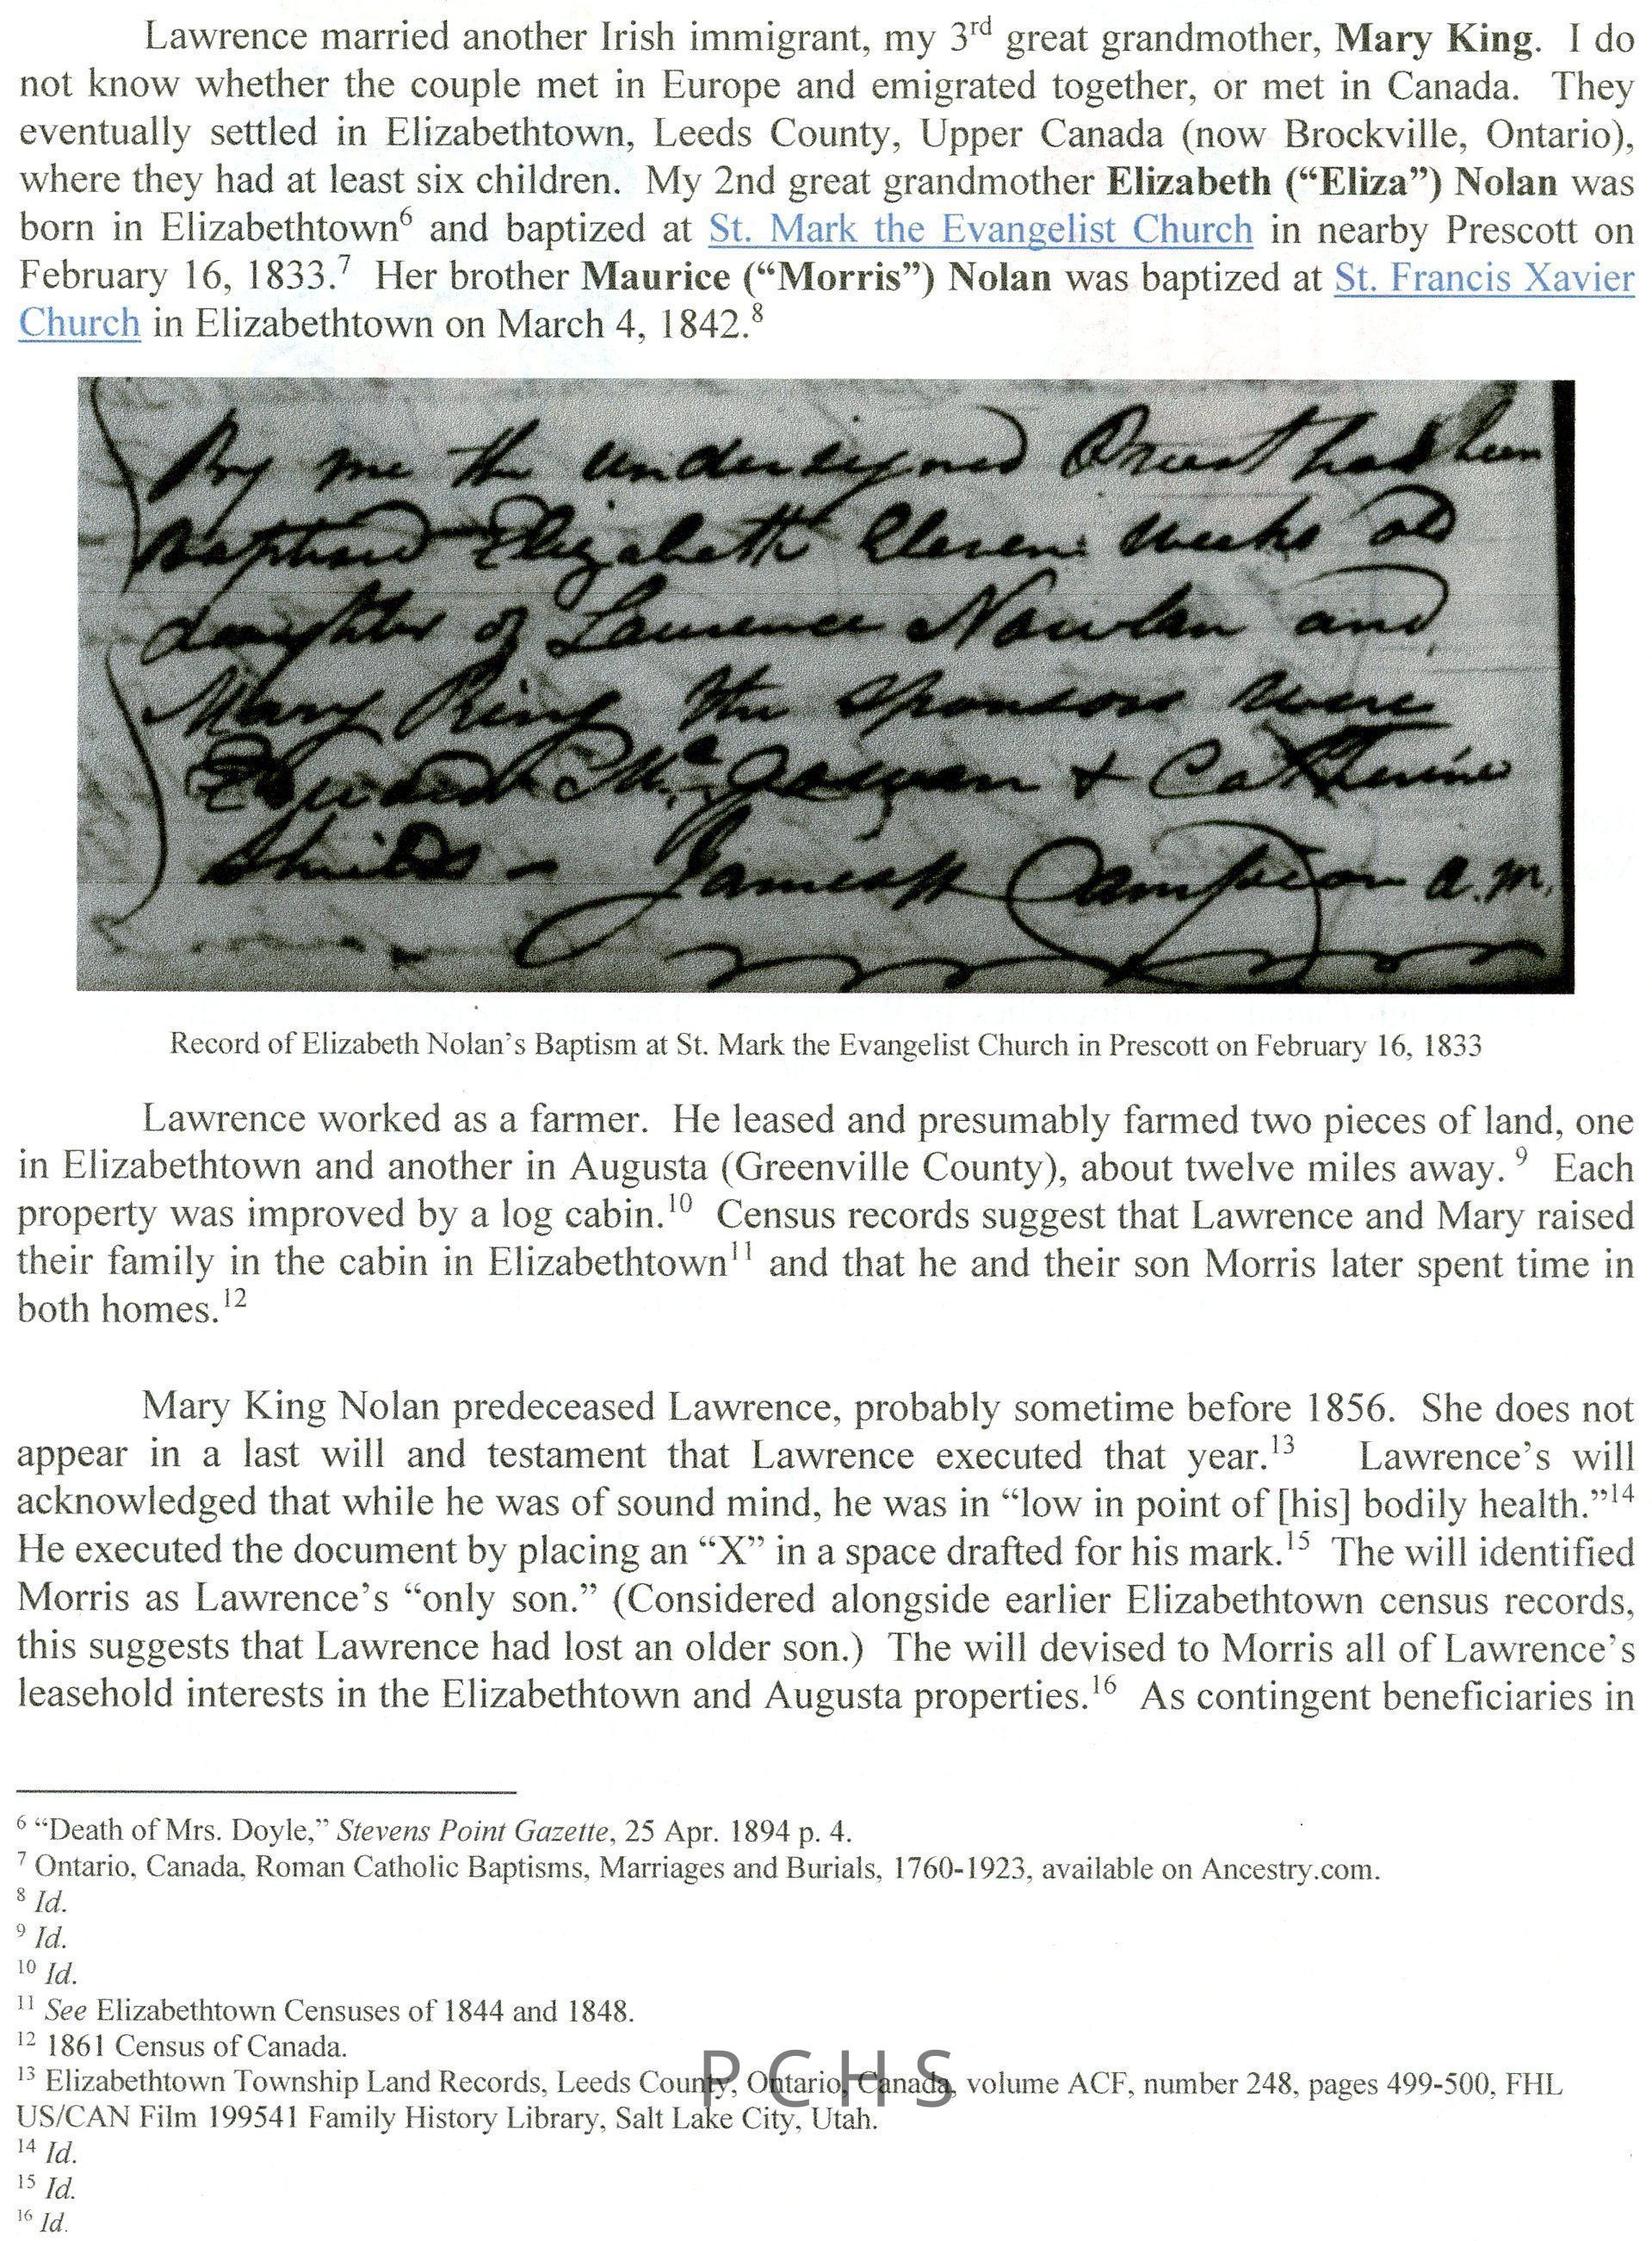 Lawrence married another Irish immigrant, my 3rd great grandmother, Mary King. I do
not know whether the couple met in Europe and emigrated together, or met in Canada. They
eventually settled in Elizabethtown, Leeds County, Upper Canada (now Brockville, Ontario),
where they had at least six children. My 2nd great grandmother Elizabeth (“Eliza”) Nolan was
born in Elizabethtown6 and baptized at St. Mark the Evangelist Church in nearby Prescott on
February 16, 1833.7 Her brother Maurice (“Morris”) Nolan was baptized at St. Francis Xavier
Church in Elizabethtown on March 4, 1842.8
By me the undersigned Priest has been
Baptised Elizabeth Eleven weeks old
daughter of Laurence Nowlan and
Mary King the sponsors were
Edward McGowan + Catherine
Shields - James Campion a.m.
Record of Elizabeth Nolan’s Baptism at St. Mark the Evangelist Church in Prescott on February 16, 1833
Lawrence worked as a farmer. He leased and presumably farmed two pieces of land, one
in Elizabethtown and another in Augusta (Greenville County), about twelve miles away. 9 Each
property was improved by a log cabin.10 Census records suggest that Lawrence and Mary raised
their family in the cabin in Elizabethtown11 and that he and their son Morris later spent time in
both homes.12
Mary King Nolan predeceased Lawrence, probably sometime before 1856. She does not
appear in a last will and testament that Lawrence executed that year.13 Lawrence’s will
acknowledged that while he was of sound mind, he was in “low in point of [his] bodily health.”14
He executed the document by placing an “X” in a space drafted for his mark.15 The will identified
Morris as Lawrence’s “only son.” (Considered alongside earlier Elizabethtown census records,
this suggests that Lawrence had lost an older son.) The will devised to Morris all of Lawrence’s
leasehold interests in the Elizabethtown and Augusta properties.16 As contingent beneficiaries in
6 “Death of Mrs. Doyle,” Stevens Point Gazette, 25 Apr. 1894 p. 4.
7 Ontario, Canada, Roman Catholic Baptisms, Marriages and Burials, 1760-1923, available on Ancestry.com.
8 Id.
9 Id.
10 Id.
11 See Elizabethtown Censuses of 1844 and 1848.
12 1861 Census of Canada.
13 Elizabethtown Township Land Records, Leeds County, Ontario, Canada, volume ACF, number 248, pages 499-500, FHL
US/CAN Film 199541 Family History Library, Salt Lake City, Utah.
14 Id.
15 Id.
16 Id.
PCHS